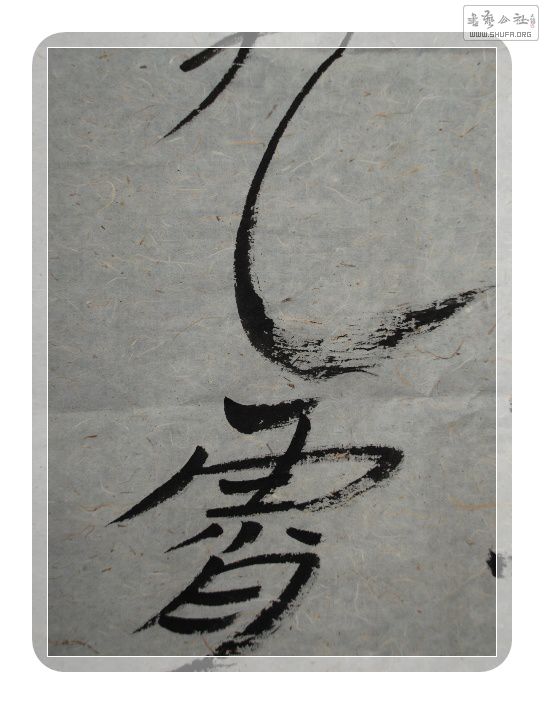 书艺公社
WWW.SHUFA.ORG
九
霄